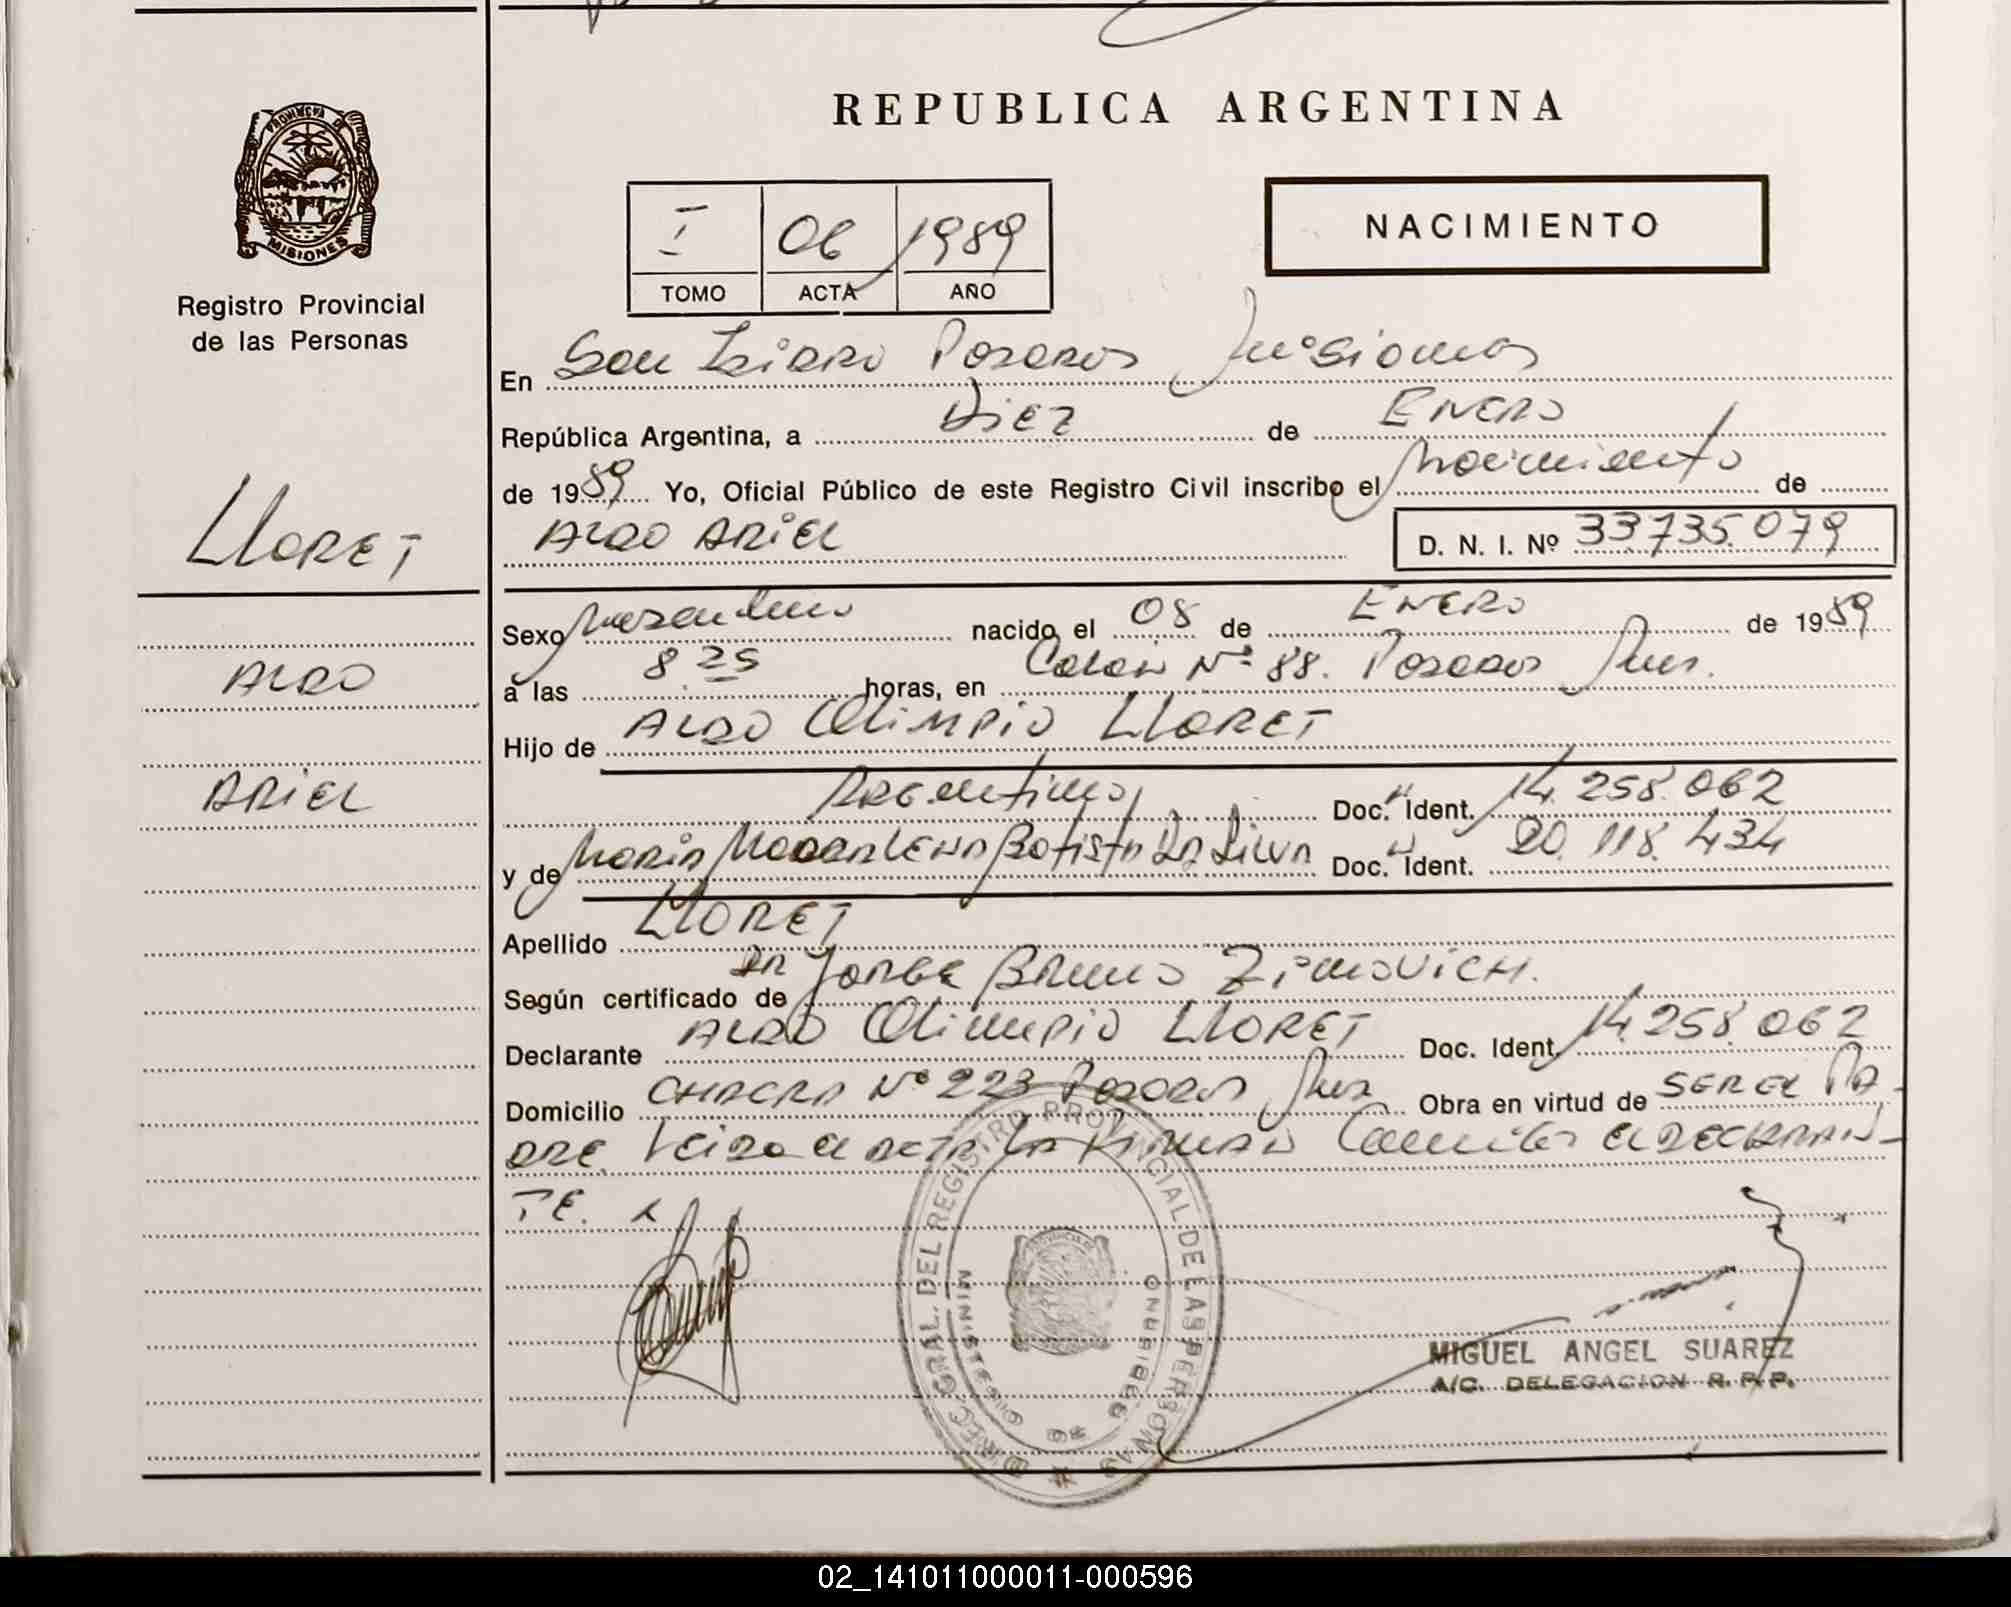 PROVINCIA DE
MISIONES
Registro Provincial
de las Personas
LLORET
ALDO
ARIEL
REPUBLICA ARGENTINA
I 06 1989
TOMO ACTA AÑO
NACIMIENTO
En San Isidro Posadas Misiones
República Argentina, a Diez de Enero
de 1989 Yo, Oficial Público de este Registro Civil inscribo el Nacimiento de
ALDO ARIEL D. N. I. Nº 33735.079
Sexo Masculino nacido el 08 de ENERO de 1989
a las 8 25 horas, en Colon Nº 88. Posadas Mnes.
Hijo de ALDO Olimpio LLORET
Argentino, Doc. Ident. 14.258.062
y de Maria Magdalena Batista Da Silva Doc. Ident. 20.118.434
Apellido LLORET
Según certificado de Dr Jorge Bruno Zimovich.
Declarante ALDO Olimpio LLORET Doc. Ident. 14.258.062
Domicilio CHACRA Nº 223 Posadas Mnes Obra en virtud de SER EL PA-
DRE. Leida el acta la firman Conmigo el DECLARAN-
TE. x
DIREC. GRAL. DEL REGISTRO PROVINCIAL DE LAS PERSONAS
MINISTERIO DE GOBIERNO
MIGUEL ANGEL SUAREZ
A/C. DELEGACION R. P. P.
02_141011000011-000596